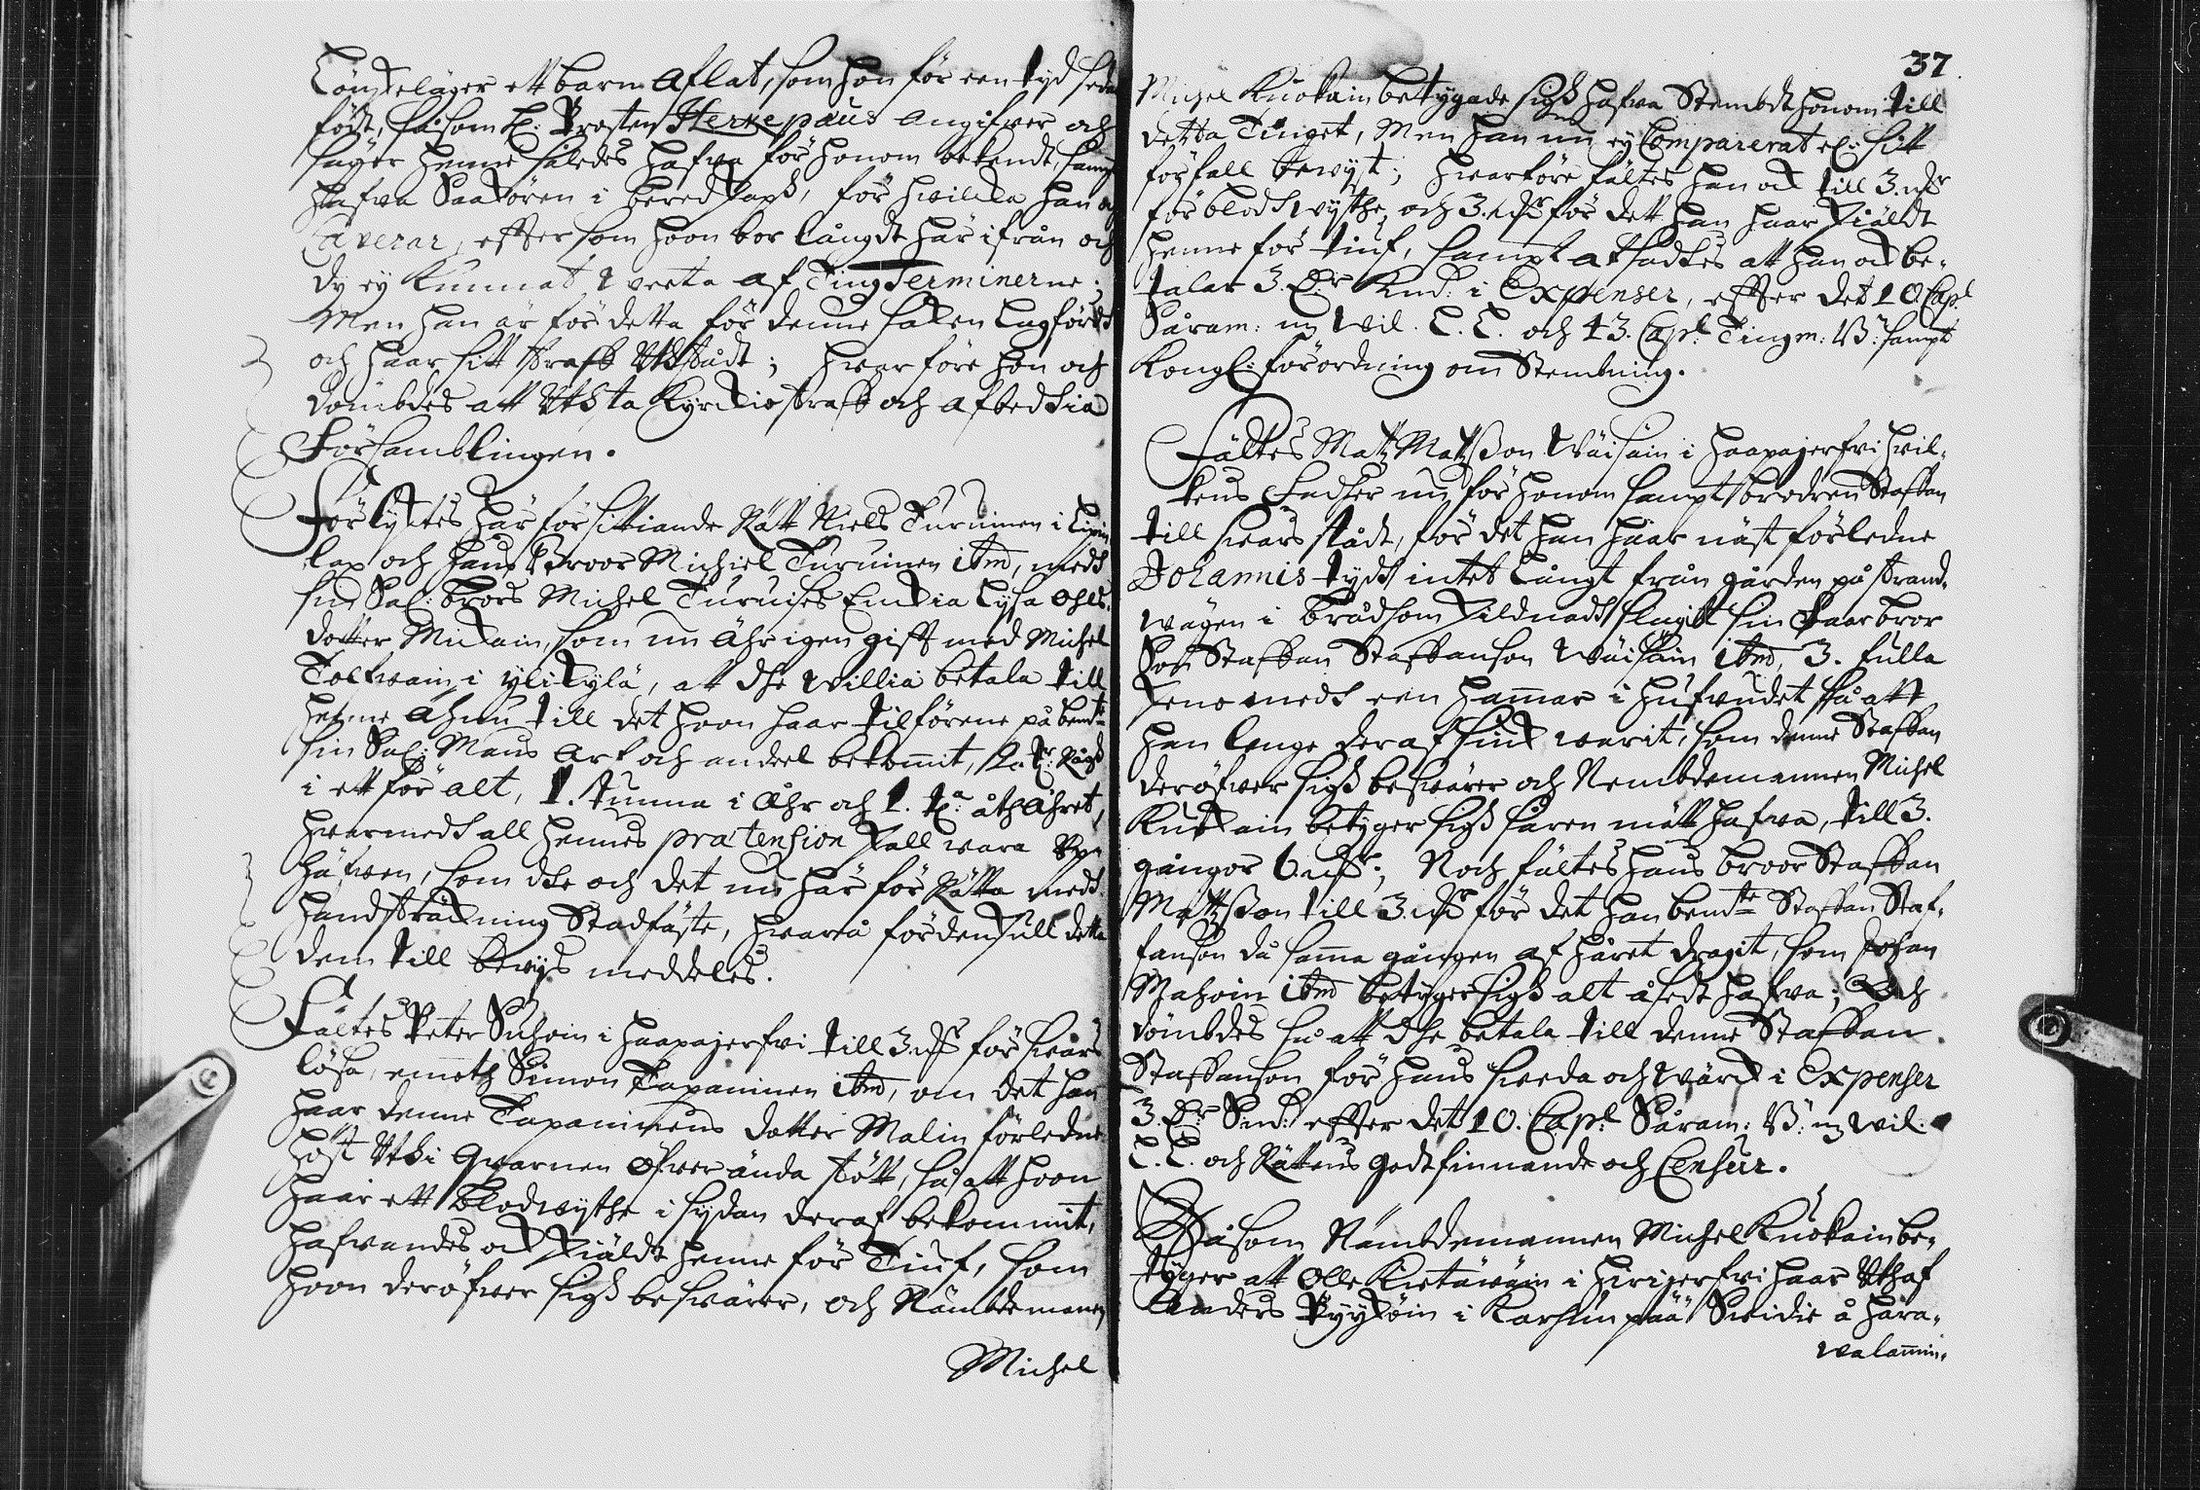 Lön̄skeläger ett barn aflat, som hon för een tydh sedan
födt, såsom H: Prosten Herkepæus angifwer och
säger henne således hafwa för honom bekendt, sampt
hafwa Saakören i beredskap, för hwilka han och
Caverar, effter som hoon bor långdt här ifrån och
dy ey kunnat weeta af TingTerminerne;
Men han är för detta för denne saken lagfördt
och haar sitt straff Uthstådt; hwarföre hon och
dömbdes att Uthstå Kyrkiostraff och afbedhia
Församblingen.
Förlyktes här för sittiande Rätt Niels Turuinen i
lax och hans Broor Michiel Turuinen ibm, medh
sin Sal: brors Michel Turuises Enkia Lysa Ohls
dotter Mickain, som nu åhrigen gifft med Michel
Tolwain i ylikylä, at dhe willia betala till
henne ähnu till det hoon haar tilförene på bem:te
sin Sal: Mans arf och andeel bekom̄it, Rågh
i ett för alt, 1. tunna i åhr och 1. t:a åth åhret,
hwarmedh all hennes prætension skall wara Up
häfwen, som dhe och det nu här för Rätta medh
handsträckning Stadfäste, hwarå fördenskull detta
dem till bewys meddeles.
Fältes Peter Suhoin i Haapajerfwi till 3. m:r för swars
lösa, emoth Simon Tapaninen ibm, om det han
haar denne Tapaninens dotter Malin förledne
höst Uthi Qwarnen öfwerända stött, så att hoon
haar ett Blodwythe i sydan deraf bekommit,
hafwandes ock skiäldt henne för Tiuf, som
hoon deröfwer sigh beswärer, och Nämbdemannen
Michel
37
Michel Kuokain betygade sigh hafwa Stembdt honom till
detta Tinget, Men han nu ey Comparerat el: sitt
förfall bewyst; hwarföre fältes han ock till 3. m:r
för blodhwythe, och 3. m:r för dett han haar skiäldt
henne för tiuf, sampt afsades att han ock be-
talar 3. D:r Km:t i Expenser, effter det 10 Cap:
Såram: m Wil. L. L. och 43. Cap: Tingm: B: sampt
Kongl: förordning om Stembning.
Fältes Matz Matzson Wäisäin i Haapajerfwi hwil-
kens Fadher nu för honom sampt brodren Staffan
till swars stådt, för det han haar näst förledne
Johannis tydh intet långt från gården på strand-
wägen i brådsom skildnadh slagit sin Faarbror
Son Staffan Staffanson Wäisäin ibm, 3. fulla
med een ham̄ar i hufwudet så att
han länge deraf siuk warit, som denne Staffan
deröfwer sigh beswärer och Nembdemannen Michel
Kuokain betyger sigh såren mätt hafwa, till 3.
gångor 6. m:r; Noch fältes hans broor Staffan
Matzson till 3. m:r för det han bem:te Staffan Staf-
fanson då samma gången af håret dragit, som Johan
Mahoin ibm betyger sigh alt åsedt hafwa; Och
dömbdes så att dhe betala till denne Staffan
Staffanson för hans sweda och wärk i Expenser
3. D:r Sm:t effter det 10. Cap: Såram: B: m wil.
L. L. och Rättens godtfinnande och Censur.
Såsom Nämbdemannen Michel Kuokain be-
tyger att Olle Kietäwäin i Hirjerfwi haar Uthaf
Anders Pyyköin i Karsimpää Swidie å hara-
walam̄in-